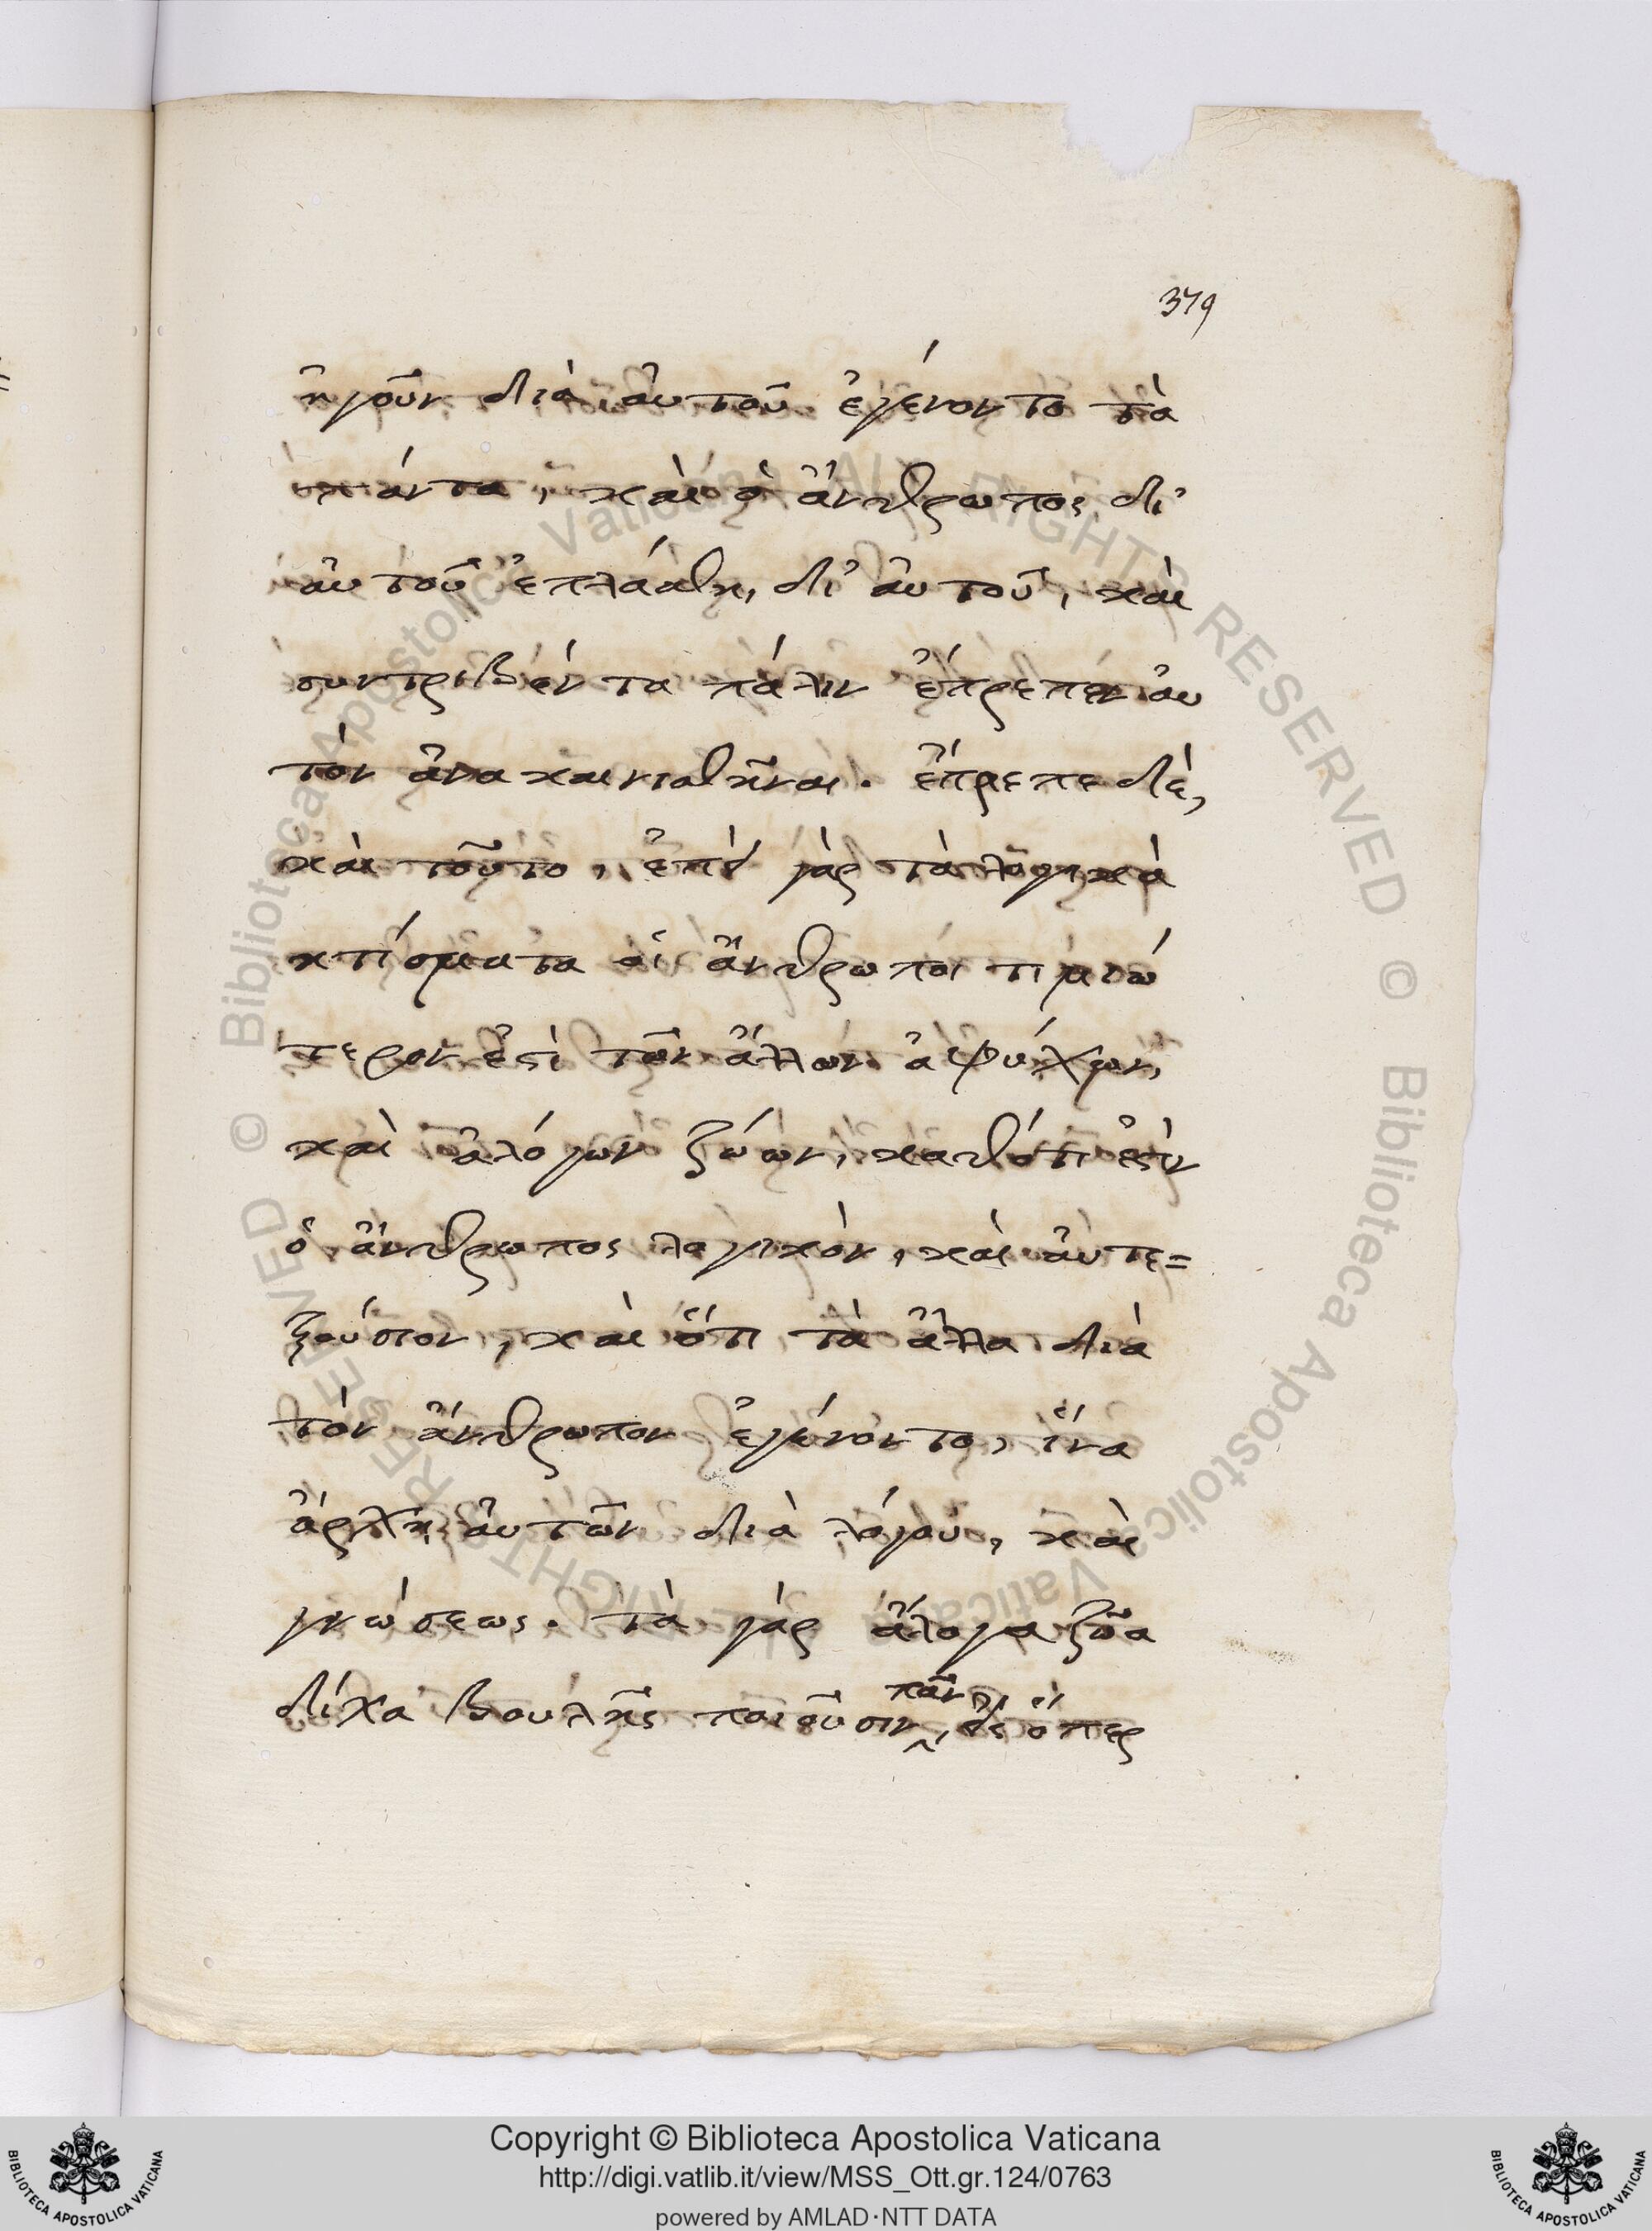 379
ἤγουν διὰ αὐτοῦ ἐγένοντο τὰ
πάντα, καὶ ὁ ἄνθρωπος δι'
αὐτοῦ ἐπλάσθη, δι' αὐτοῦ, καὶ
συντριβέντα πάλιν ἔπρεπεν αὐ
τὸν ἀνακαινισθῆναι. ἔπρεπε δὲ,
καὶ τοῦτο, ἐπεὶ γὰρ τὰ λογικὰ
κτίσματα οἱ ἄνθρωποι τιμιώ
τερον ἐστὶ τῶν ἄλλων ἀψύχων,
καὶ ἀλόγων ζώων, καθότι ἐστὶν
ὁ ἄνθρωπος λογικὸν, καὶ αὐτε=
ξούσιον, καὶ ὅτι τὰ ἄλλα διὰ
τὸν ἄνθρωπον ἐγένοντο, ἵνα
ἄρχῃ αὐτῶν διὰ λόγου, καὶ
γνώσεως. τὰ γὰρ ἄλογα ζῶα
δίχα βουλῆς ποιοῦσιν πᾶν, εἰς ὅπερ
Copyright © Biblioteca Apostolica Vaticana
http://digi.vatlib.it/view/MSS_Ott.gr.124/0763
powered by AMLAD·NTT DATA
BIBLIOTECA APOSTOLICA VATICANA
BIBLIOTECA APOSTOLICA VATICANA
© Biblioteca Apostolica Vaticana ALL RIGHTS RESERVED © Biblioteca Apostolica Vaticana ALL RIGHTS RESERVED